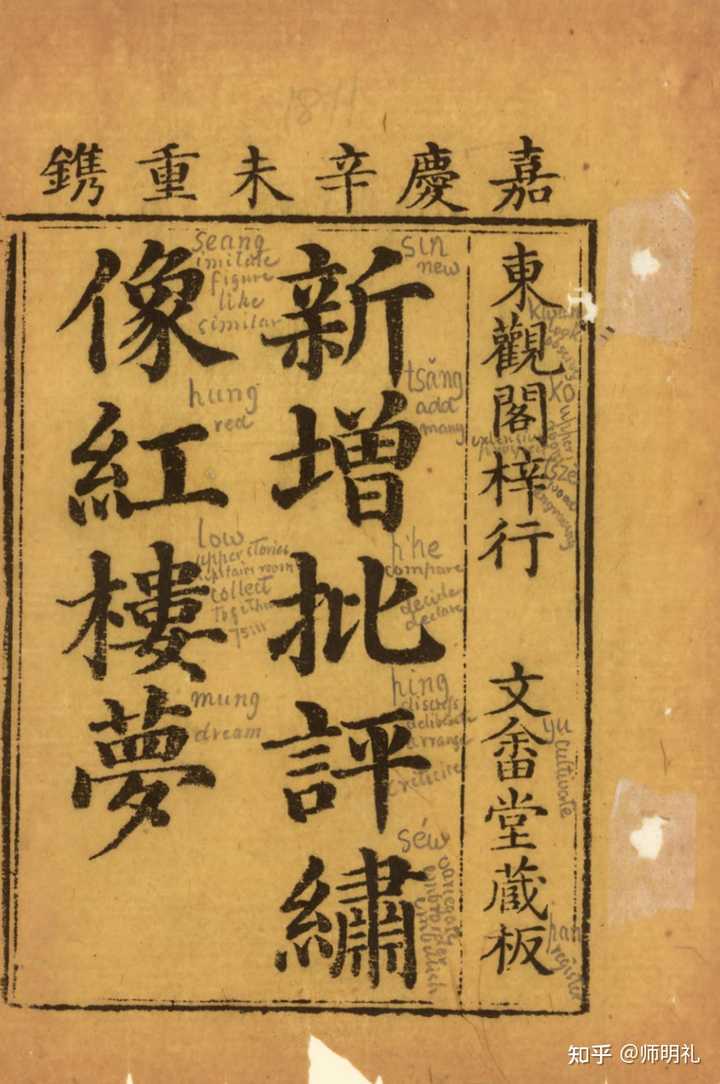 1811
嘉慶辛未重鐫
東觀閣梓行
文畬堂藏板
新增批評繡
像紅樓夢
sin
new
tsăng
add
many
p'he
compare
decide
declare
ping
discuss
deliberate
arrange
criticise
séw
variegate
embroider
embellish
seang
imitate
figure
like
similar
hung
red
low
upper stories
upstairs room
collect
together
mung
dream
kwan
look
ko
upper
tsze
engraving
yu
cultivate
pan
register
知乎 @师明礼